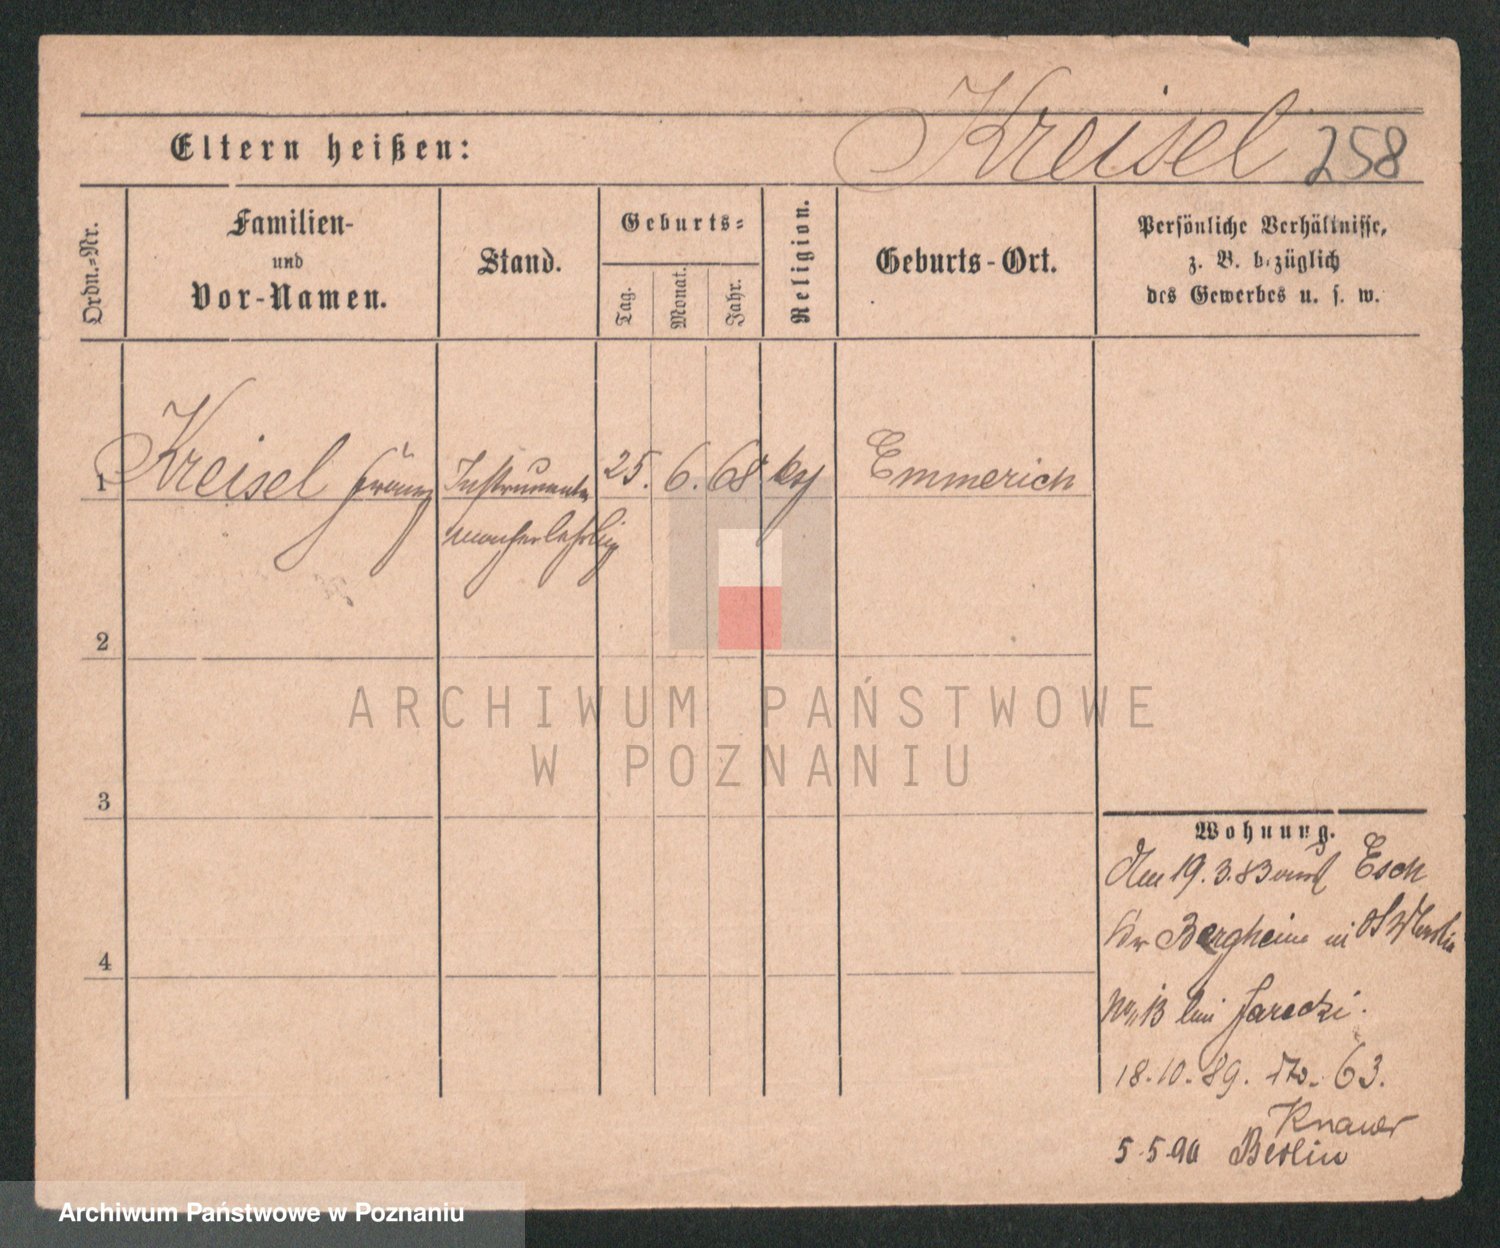 Kreisel 258
Eltern heißen:
Ordn.-Nr.
Familien-
und
Vor-Namen.
Stand.
Geburts-
Tag.
Monat.
Jahr.
Religion.
Geburts-Ort.
Persönliche Verhältnisse,
z. B. bezüglich
des Gewerbes u. s. w.
1 Kreisel Franz Instrumenten 25. 6. 68 Emmerich
macherlehrling
2
3
4
ARCHIWUM PAŃSTWOWE
W POZNANIU
Wohnung.
19. 3. 83 Esch
Bergheim
13 bei Jarecki.
18.10.89. 63.
Knauer
5.5.90 Berlin
Archiwum Państwowe w Poznaniu